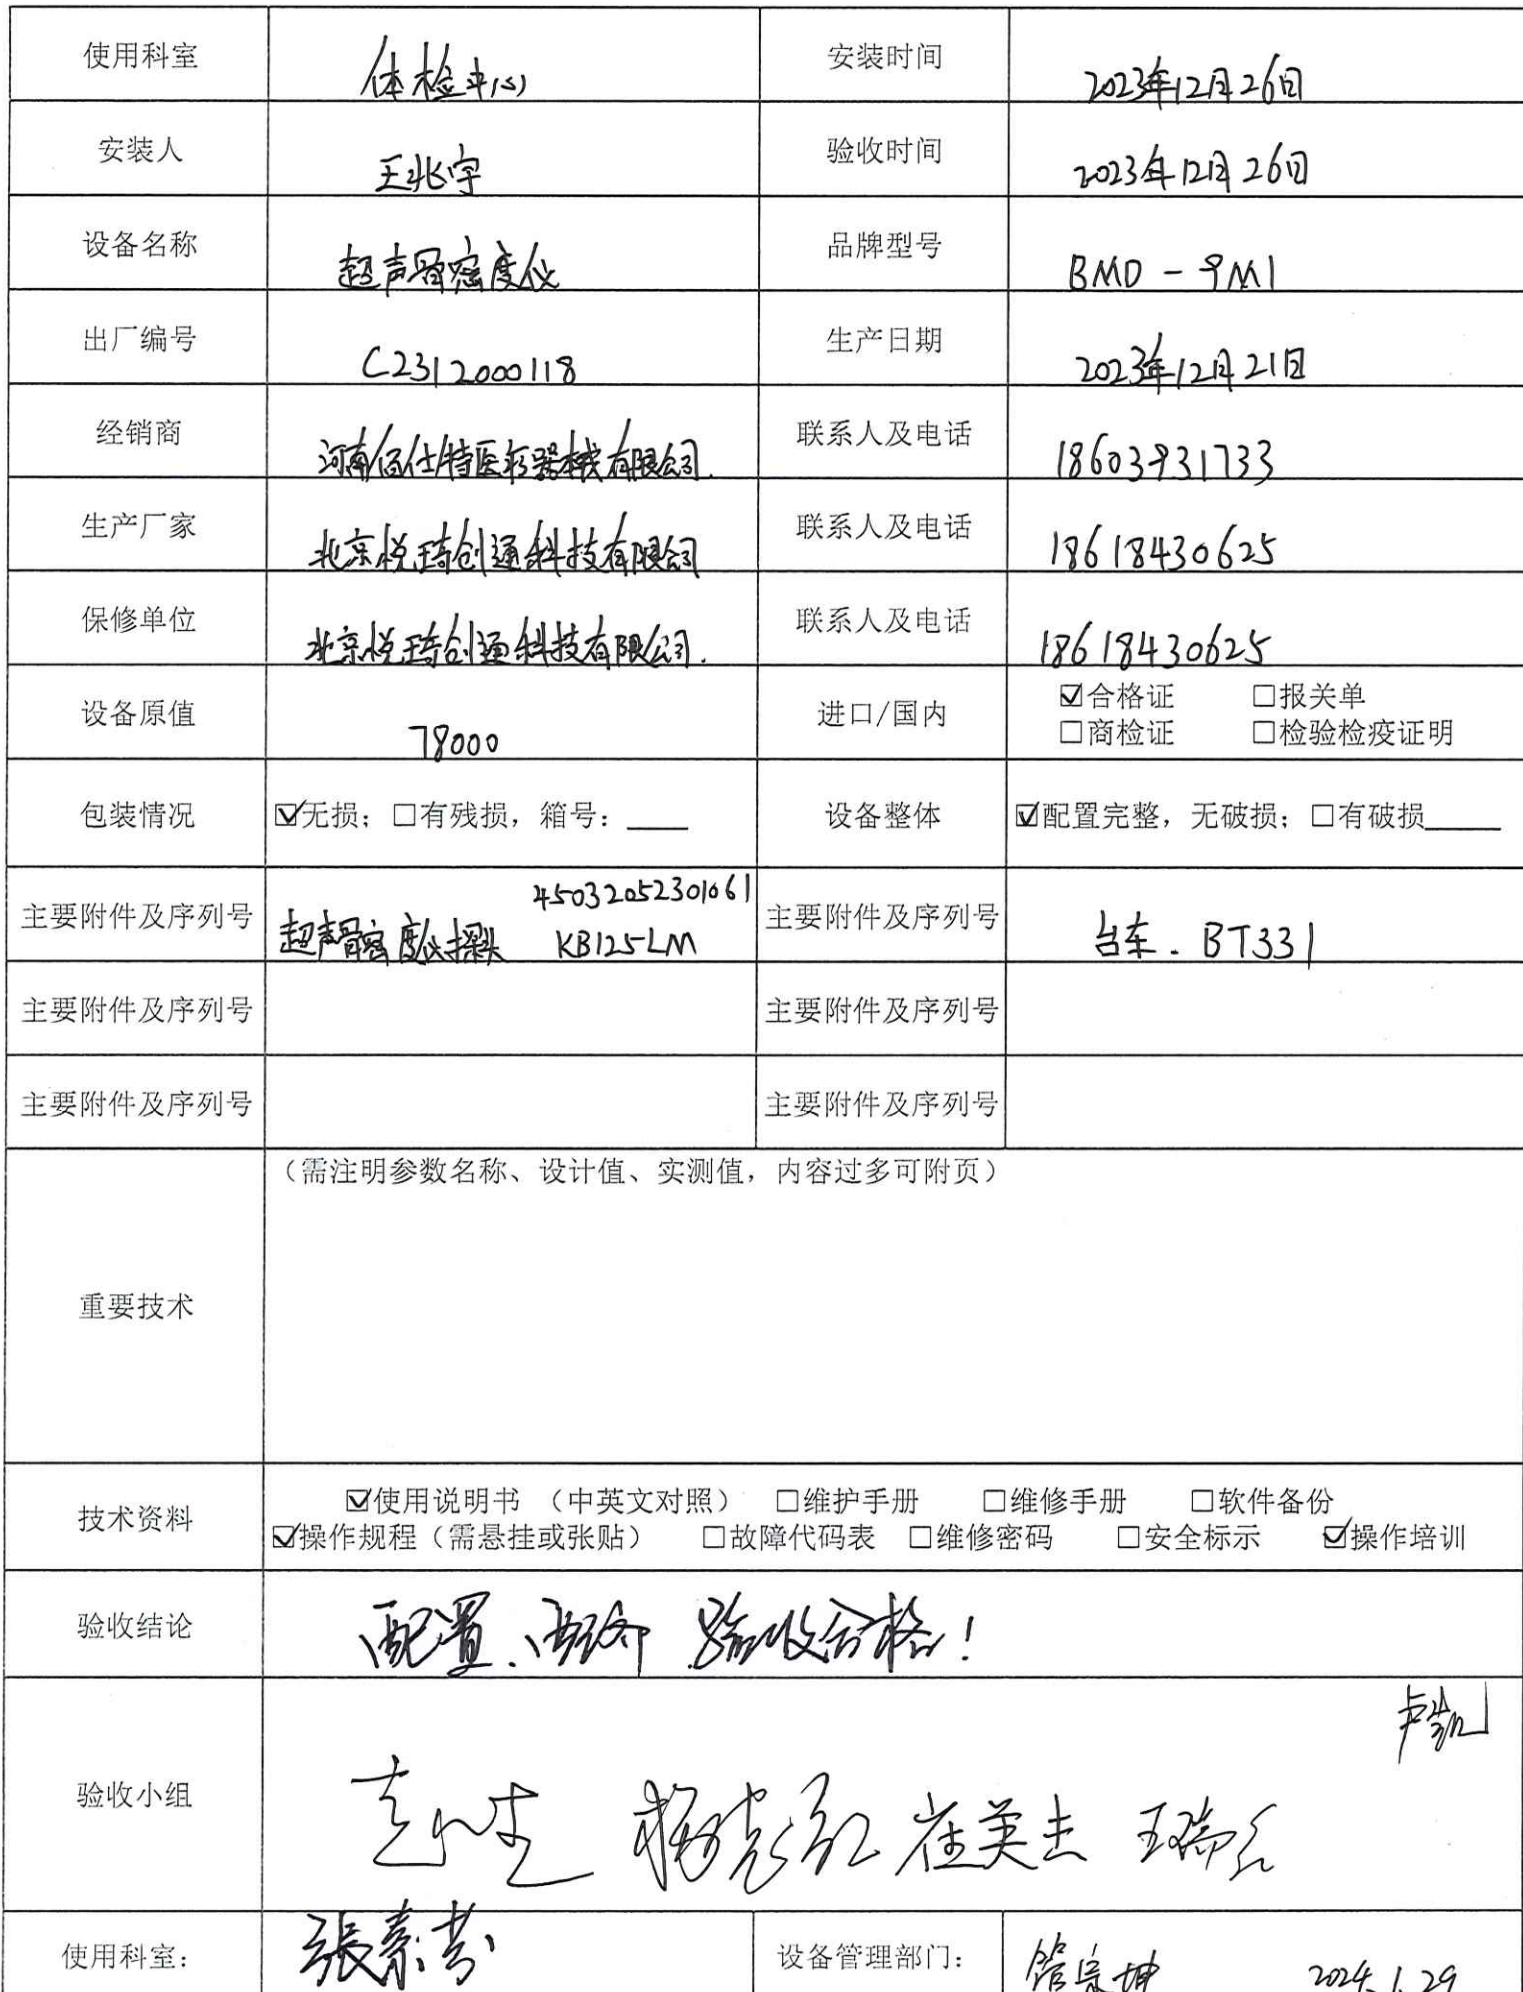 使用科室 体检中心 安装时间 2023年12月26日
安装人 王兆宇 验收时间 2023年12月26日
设备名称 超声骨密度仪 品牌型号 BMD-9M1
出厂编号 C2312000118 生产日期 2023年12月21日
经销商 河南佰仕特医疗器械有限公司. 联系人及电话 18603931733
生产厂家 北京悦琦创通科技有限公司 联系人及电话 18618430625
保修单位 北京悦琦创通科技有限公司. 联系人及电话 18618430625
设备原值 78000 进口/国内 ☑合格证 □报关单
□商检证 □检验检疫证明
包装情况 ☑无损；□有残损，箱号：____ 设备整体 ☑配置完整，无破损；□有破损_____
45032052301061
主要附件及序列号 超声骨密度仪探头 KB125LM 主要附件及序列号 台车. BT331
主要附件及序列号 主要附件及序列号
主要附件及序列号 主要附件及序列号
（需注明参数名称、设计值、实测值，内容过多可附页）
重要技术
☑使用说明书 （中英文对照） □维护手册 □维修手册 □软件备份
技术资料
☑操作规程（需悬挂或张贴） □故障代码表 □维修密码 □安全标示 ☑操作培训
验收结论 配置、 验收合格！
卢凯
验收小组 崔英杰 王瑞
使用科室： 張素芳 设备管理部门： 管宗坤 2024.1.29